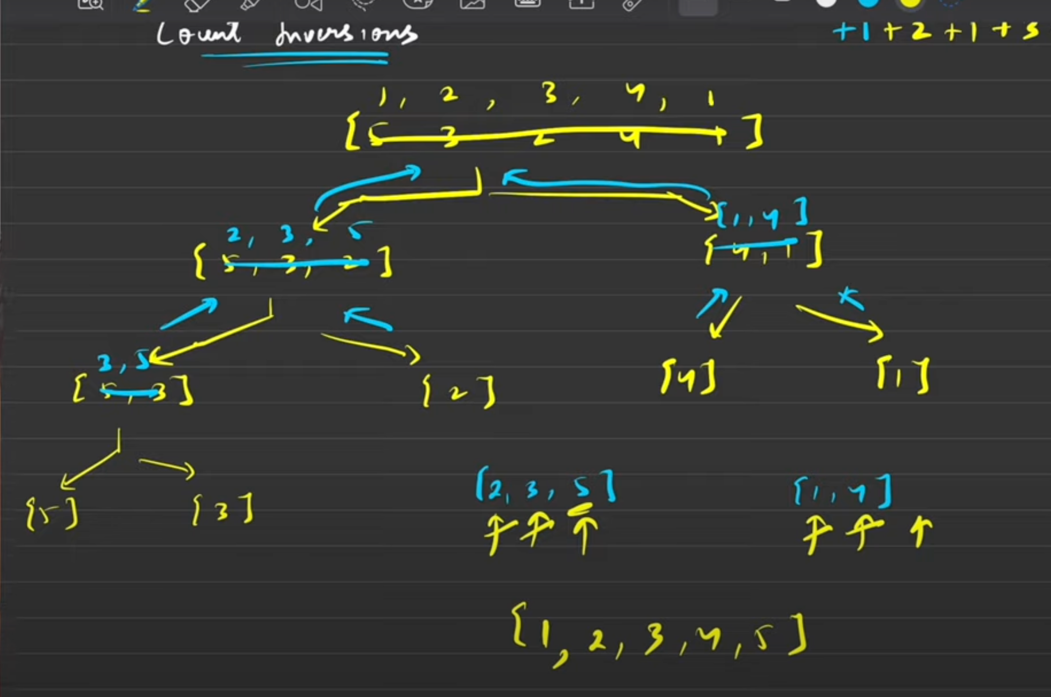 Count Inversions
+1 + 2 + 1 + 5
1, 2, 3, 4, 1
[5 3 2 4 1]
2, 3, 5
[5, 3, 2]
[1, 4]
[4, 1]
3, 5
[5, 3]
[2]
[4]
[1]
[5]
[3]
[2, 3, 5]
[1, 4]
[1, 2, 3, 4, 5]